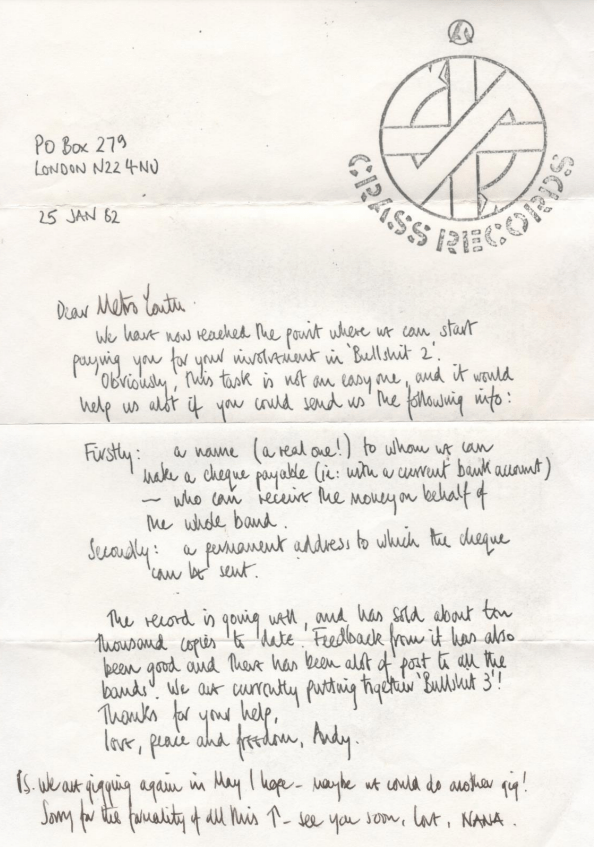 CRASS RECORDS
PO Box 279
LONDON N22 4NU
25 JAN 82
Dear Metro Youth.
We have now reached the point where we can start
paying you for your involvement in 'Bullshit 2'.
Obviously, this task is not an easy one, and it would
help us alot if you could send us the following info:
Firstly: a name (a real one!) to whom we can
make a cheque payable (ie: with a current bank account)
— who can receive the money on behalf of
the whole band.
Secondly: a permanent address to which the cheque
can be sent.
The record is going well, and has sold about ten
thousand copies to date. Feedback from it has also
been good and there has been alot of post to all the
bands'. We are currently putting together 'Bullshit 3'!
Thanks for your help,
love, peace and freedom, Andy.
PS. We are gigging again in May I hope – maybe we could do another gig!
Sorry for the formality of all this ↑ – see you soon, love, NANA.